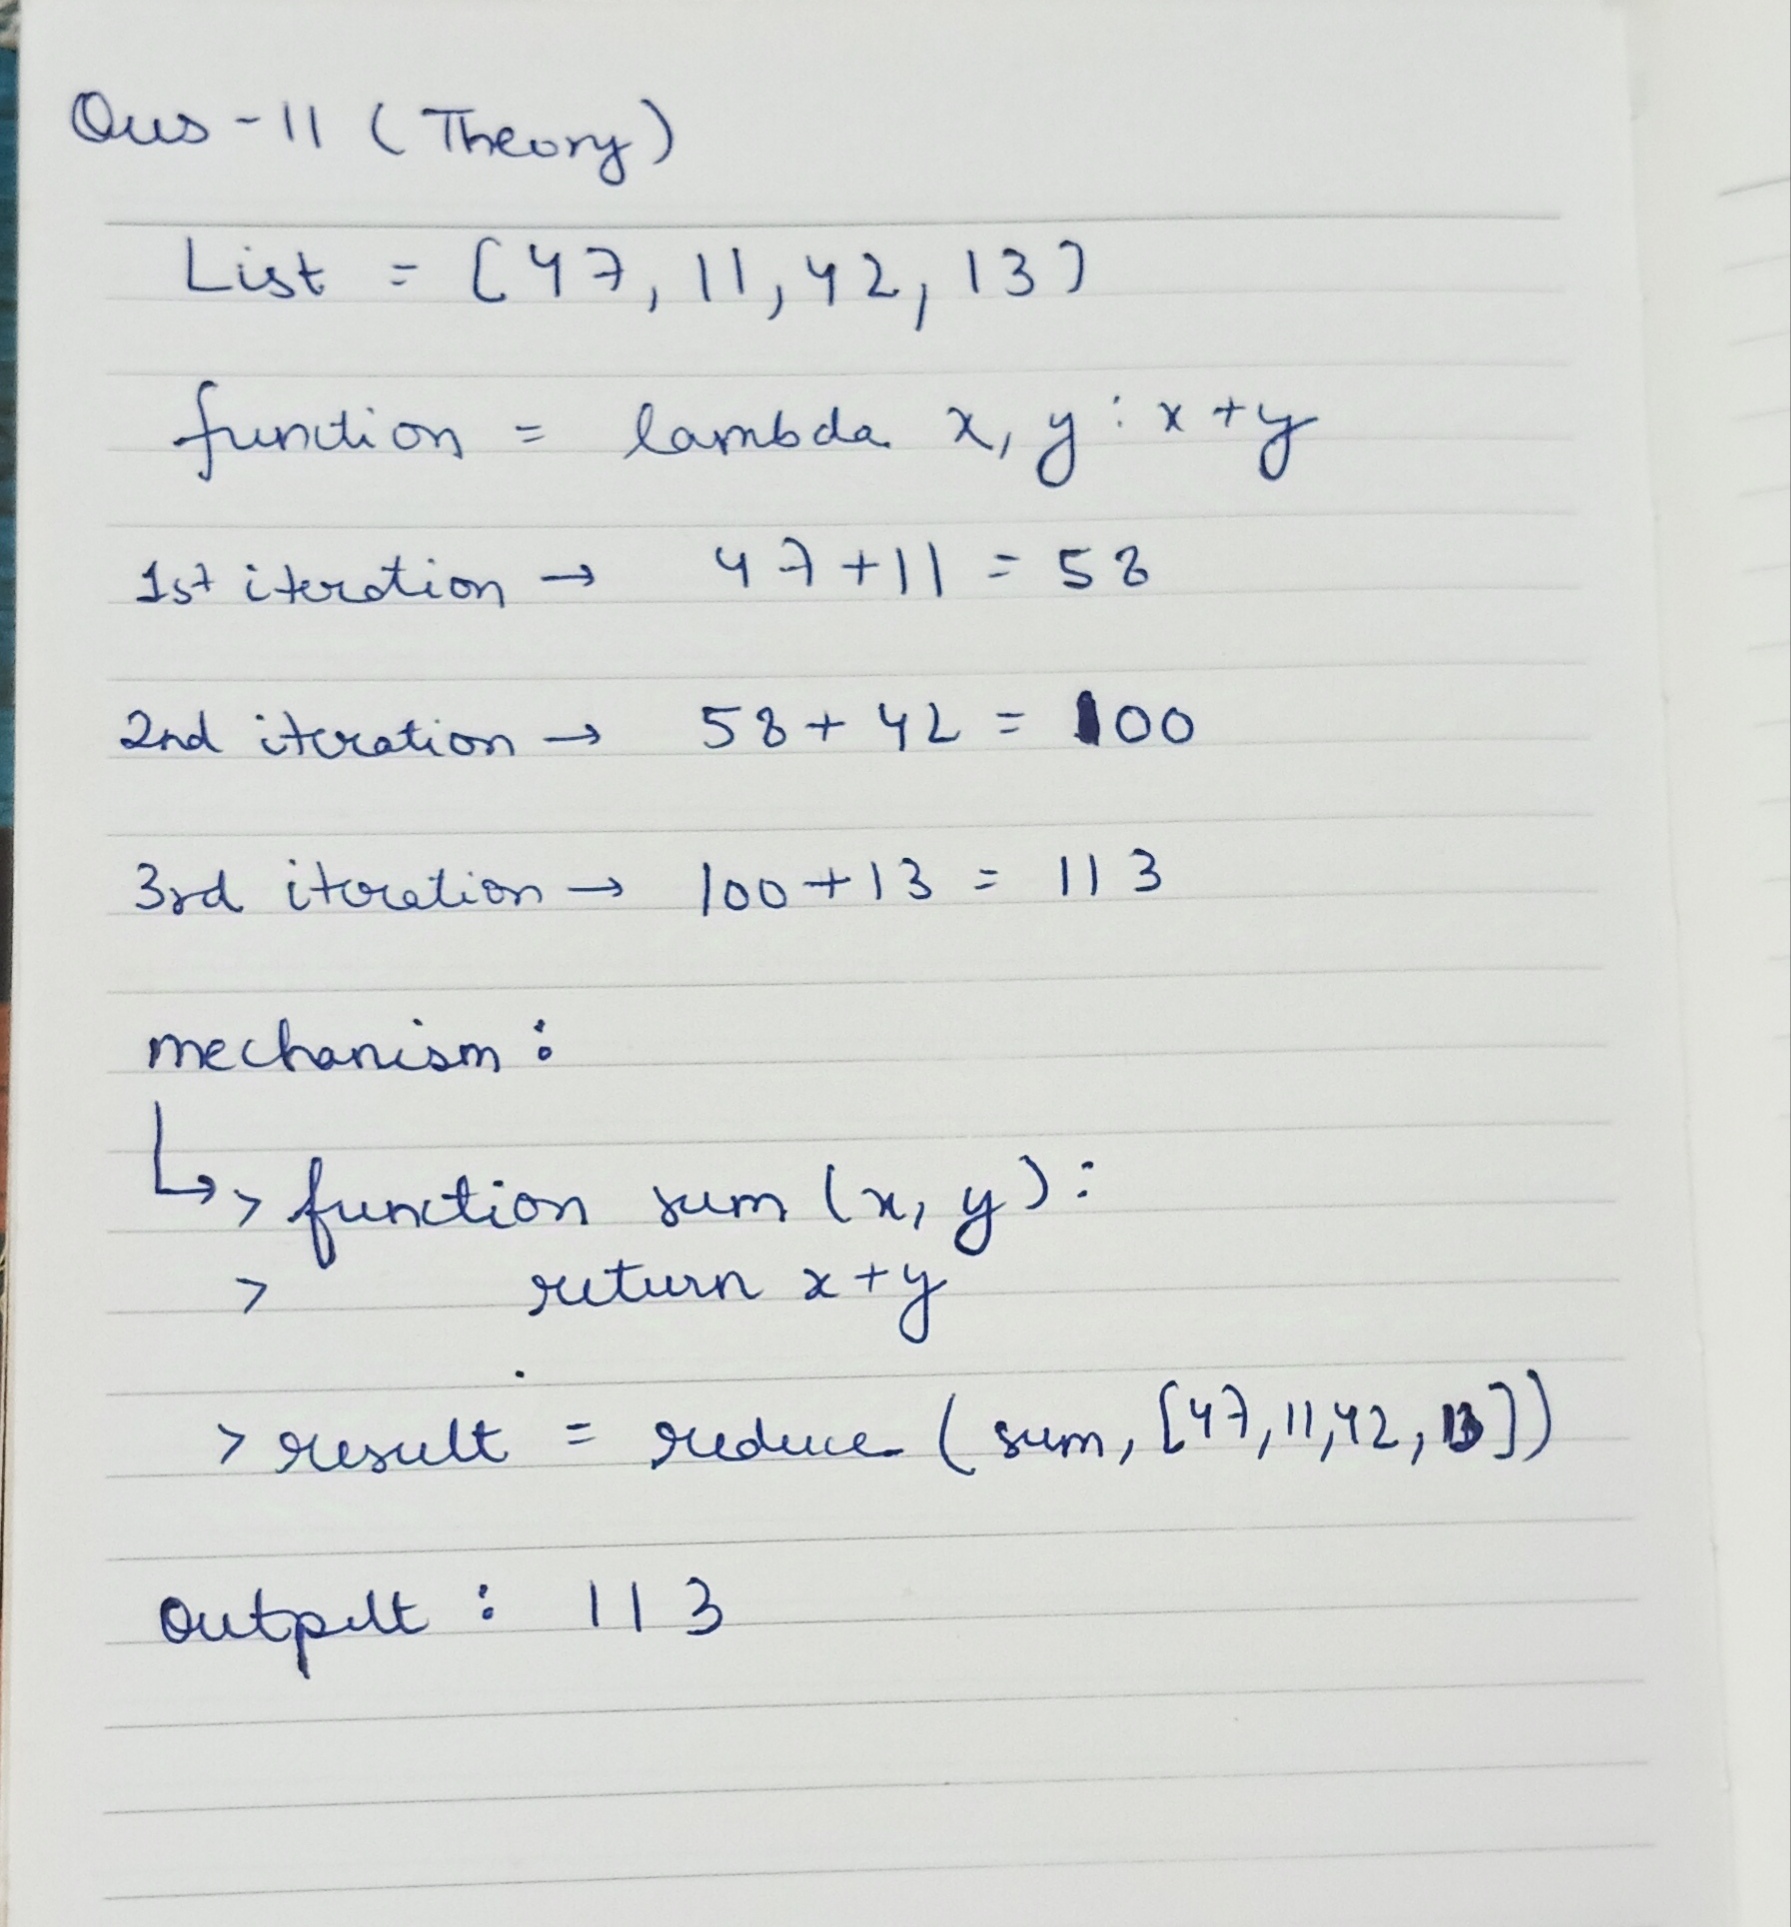 Ques - 11 (Theory)
List = [47, 11, 42, 13]
function = lambda x, y : x + y
1st iteration → 47 + 11 = 58
2nd iteration → 58 + 42 = 100
3rd iteration → 100 + 13 = 113
mechanism :
↳ > function sum (x, y) :
> return x + y
> result = reduce ( sum, [47, 11, 42, 13])
Output : 113